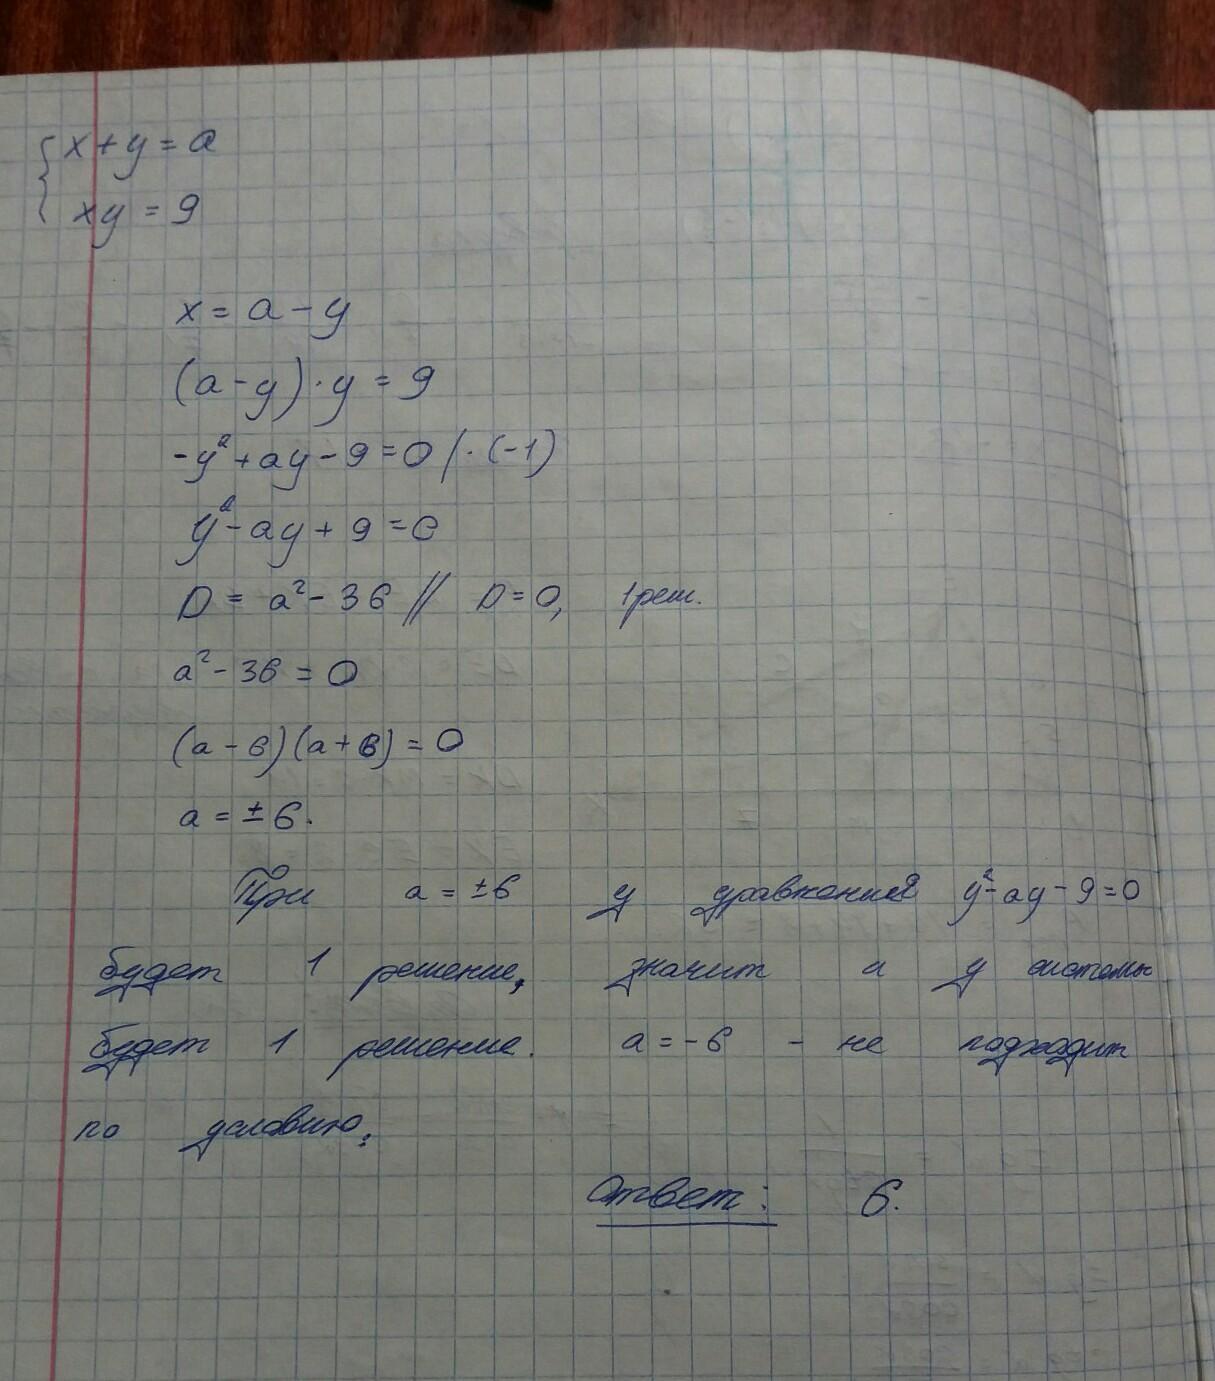 { x + y = a
xy = 9
x = a - y
(a - y) · y = 9
-y² + ay - 9 = 0 / · (-1)
y² - ay + 9 = 0
D = a² - 36 // D = 0, 1 реш.
a² - 36 = 0
(a - 6)(a + 6) = 0
a = ± 6.
При a = ±6 у уравнения y² - ay - 9 = 0
будет 1 решение, значит и у системы
будет 1 решение. a = -6 - не подходит
по условию.
Ответ: 6.